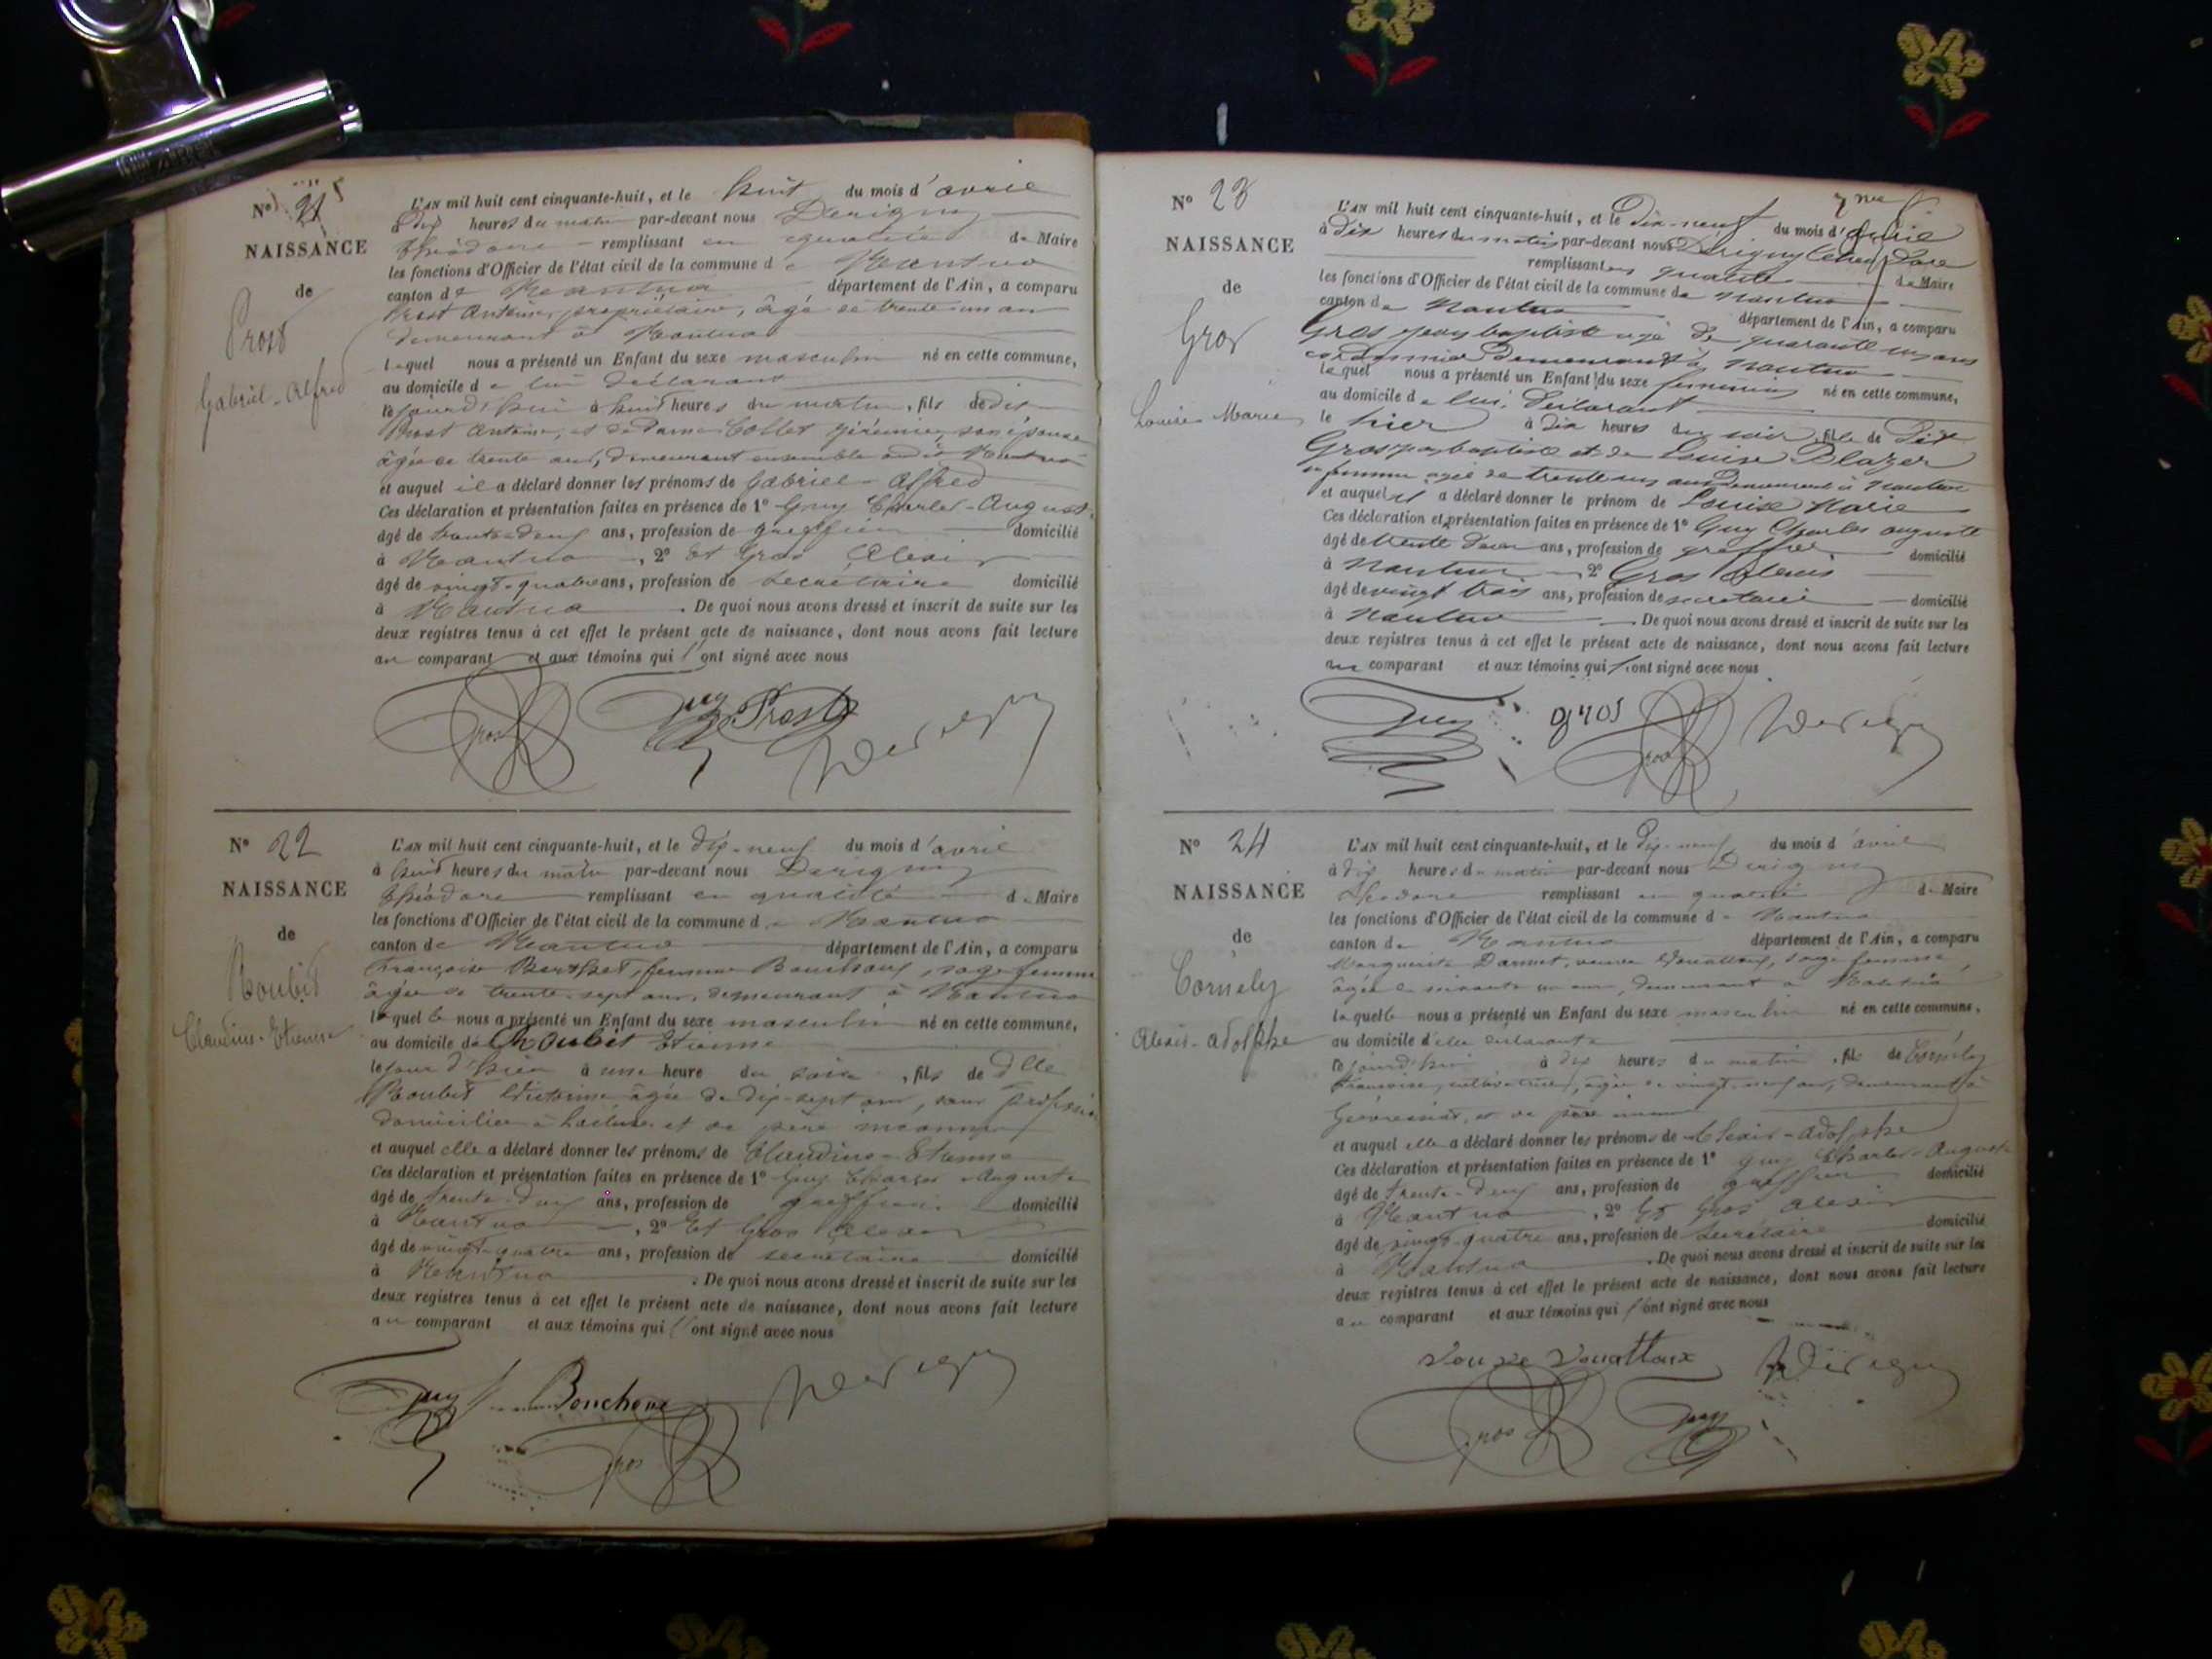 N° 21
NAISSANCE
de
Prost
Gabriel-Alfred
L'AN mil huit cent cinquante-huit, et le huit du mois d'avril
à dix heures du matin par-devant nous Derigny
Théodore remplissant en qualité de Maire
les fonctions d'Officier de l'état civil de la commune de Nantua
canton de Nantua département de l'Ain, a comparu
Prost Antoine, propriétaire, âgé de trente-un an
demeurant à Nantua
lequel nous a présenté un Enfant du sexe masculin né en cette commune,
au domicile de lui déclarant
le jourd'hui à huit heures du matin, fils de dit
Prost Antoine, et de Dame Collet son épouse
âgée de trente ans, demeurant ensemble audit Nantua
et auquel il a déclaré donner les prénoms de Gabriel-Alfred
Ces déclaration et présentation faites en présence de 1° Guy Charles-Auguste
âgé de trente-deux ans, profession de greffier domicilié
à Nantua, 2° Et Gros Alexis
âgé de vingt-quatre ans, profession de secrétaire domicilié
à Nantua. De quoi nous avons dressé et inscrit de suite sur les
deux registres tenus à cet effet le présent acte de naissance, dont nous avons fait lecture
au comparant et aux témoins qui l'ont signé avec nous
Gros Guy Prost Derigny
N° 22
NAISSANCE
de
Roubit
Claudius-Etienne
L'AN mil huit cent cinquante-huit, et le dix-neuf du mois d'avril
à huit heures du matin par-devant nous Derigny
Théodore remplissant en qualité de Maire
les fonctions d'Officier de l'état civil de la commune de Nantua
canton de Nantua département de l'Ain, a comparu
Françoise Berthet, femme Bouchoux, sage femme
âgée de trente-sept ans, demeurant à Nantua
laquelle nous a présenté un Enfant du sexe masculin né en cette commune,
au domicile de Roubit Etienne
le jour d'hier à une heure du soir, fils de Dlle
Roubit Victorine âgée de dix-sept ans, sans profession
domiciliée à et de père inconnu
et auquel elle a déclaré donner les prénoms de Claudius-Etienne
Ces déclaration et présentation faites en présence de 1° Guy Charles Auguste
âgé de trente-deux ans, profession de greffier domicilié
à Nantua, 2° Et Gros Alexis
âgé de vingt-quatre ans, profession de secrétaire domicilié
à Nantua. De quoi nous avons dressé et inscrit de suite sur les
deux registres tenus à cet effet le présent acte de naissance, dont nous avons fait lecture
au comparant et aux témoins qui l'ont signé avec nous
Guy Bouchoux Derigny
Gros
N° 23
NAISSANCE
de
Gros
Louise Marie
L'AN mil huit cent cinquante-huit, et le Dix-neuf du mois d'avril
à dix heures du matin par-devant nous Derigny Théodore
remplissant en qualité de Maire
les fonctions d'Officier de l'état civil de la commune de Nantua
canton de Nantua département de l'Ain, a comparu
Gros jean baptiste agé de quarante un ans
cordonnier demeurant à Nantua
lequel nous a présenté un Enfant du sexe feminin né en cette commune,
au domicile de lui, déclarant
le hier à dix heures du soir, fille de Dit
Gros jean baptiste et de Louise Blazer
sa femme agée de trente six ans demeurant à Nantua
et auquel il a déclaré donner le prénom de Louise Marie
Ces déclaration et présentation faites en présence de 1° Guy Charles auguste
âgé de trente deux ans, profession de greffier domicilié
à Nantua 2° Gros Alexis
âgé de vingt trois ans, profession de secretaire domicilié
à Nantua. De quoi nous avons dressé et inscrit de suite sur les
deux registres tenus à cet effet le présent acte de naissance, dont nous avons fait lecture
au comparant et aux témoins qui l'ont signé avec nous
Guy gros Gros Derigny
N° 24
NAISSANCE
de
Cornely
Alexis-Adolphe
L'AN mil huit cent cinquante-huit, et le dix-neuf du mois d'avril
à dix heures du matin par-devant nous Derigny
Théodore remplissant en qualité de Maire
les fonctions d'Officier de l'état civil de la commune de Nantua
canton de Nantua département de l'Ain, a comparu
Marguerite Darmet, veuve sage femme,
âgée de soixante un ans, demeurant à Nantua
laquelle nous a présenté un Enfant du sexe masculin né en cette commune,
au domicile d'elle déclarante
le jourd'hui à dix heures du matin, fils de Cornély
Françoise, cultivatrice, âgée de vingt-neuf ans, demeurant à
Géovressiat, et de père inconnu
et auquel elle a déclaré donner les prénoms de Alexis-Adolphe
Ces déclaration et présentation faites en présence de 1° Guy Charles-Auguste
âgé de trente-deux ans, profession de greffier domicilié
à Nantua, 2° Et Gros Alexis
âgé de vingt-quatre ans, profession de secrétaire domicilié
à Nantua. De quoi nous avons dressé et inscrit de suite sur les
deux registres tenus à cet effet le présent acte de naissance, dont nous avons fait lecture
au comparant et aux témoins qui l'ont signé avec nous
Derigny
Gros Guy